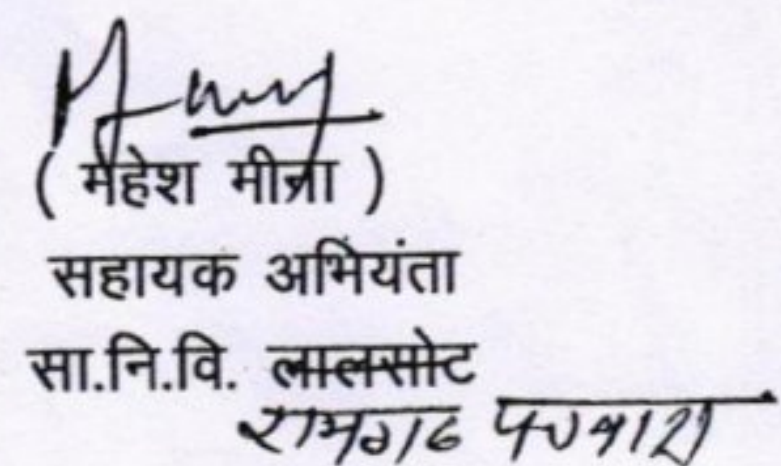 ( महेश मीना )
सहायक अभियंता
सा.नि.वि. लालसोट
रामगढ पचवारा